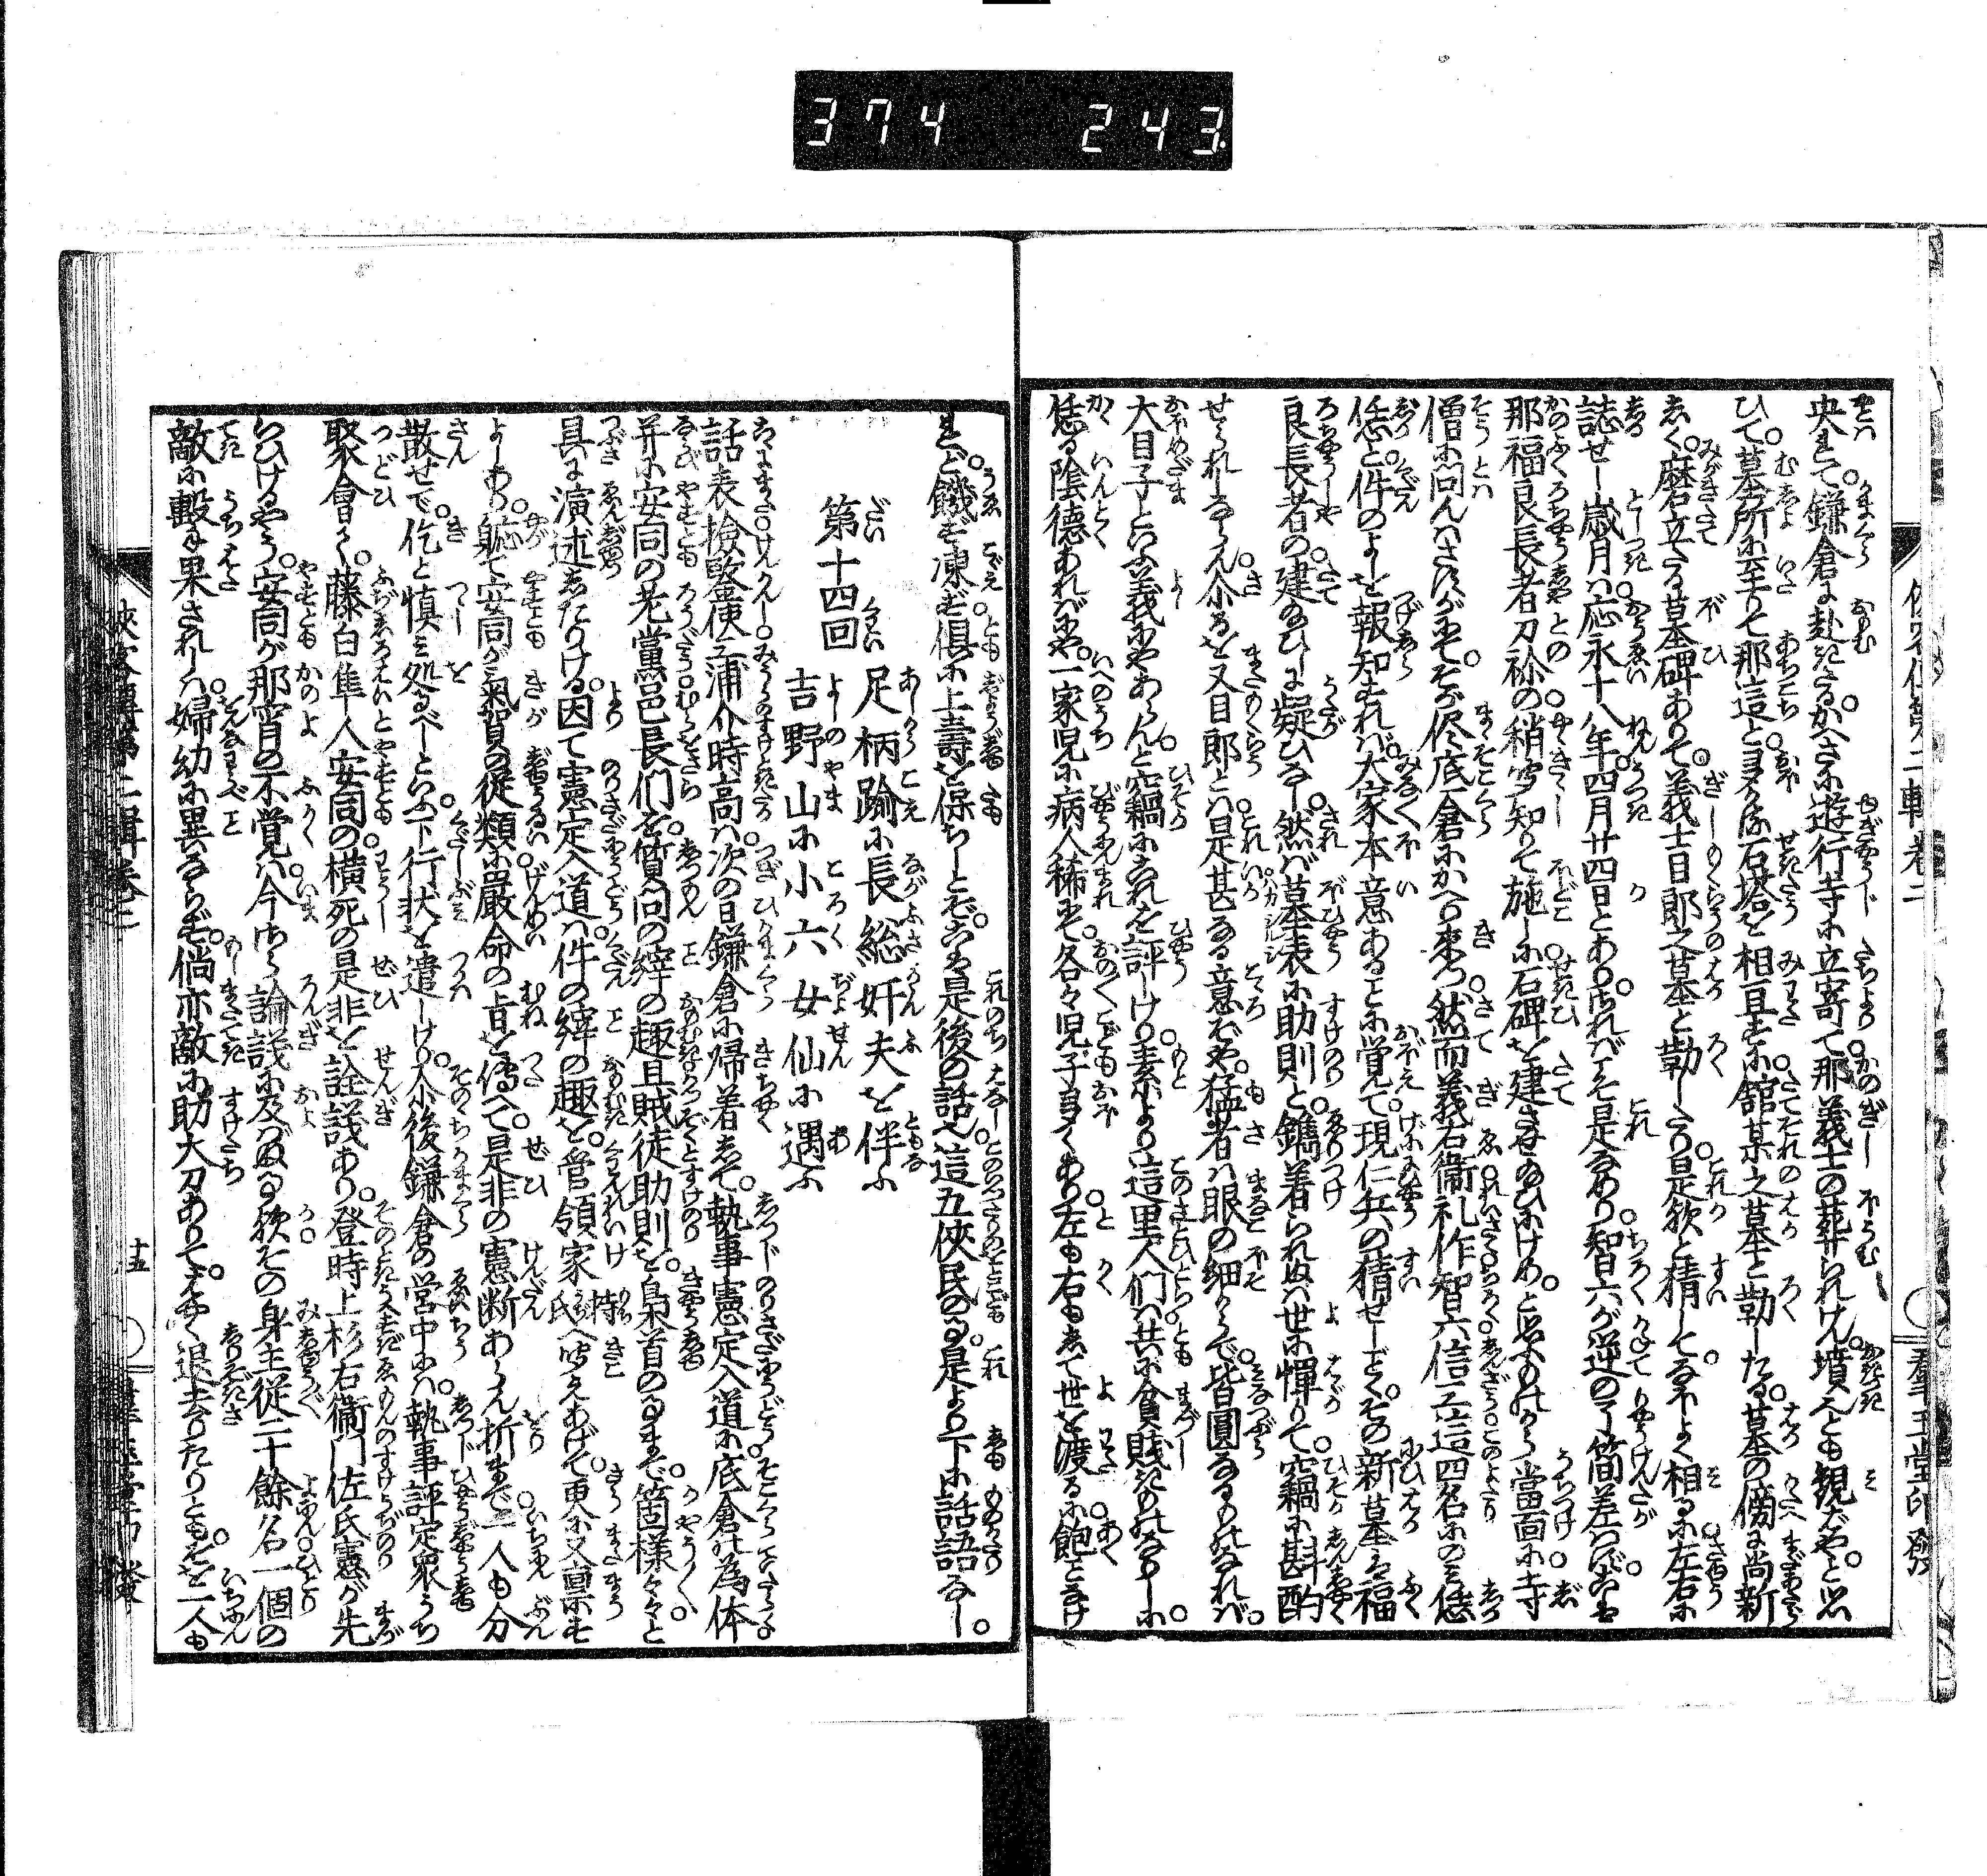 374 243
央まで。鎌倉に赴きたる。かへさに遊行寺に立寄て。那義士の葬られけん。墳墓をも観ばやと思
ひて。墓所に至りて那這と。多かる石塔を相亘すに。舘某之墓と勒したる。墓の傍に尚新
しく。磨き立たる墓碑ありて。義士目郎之墓と勒したり。是歟と猜しつるに。よく相るに左右に
誌せし歳月は。応永十八年四月廿四日とあり。されバこそ是なめり。智六が逆の了簡差はずは
那福良長者刀祢の。稍聞知りて施しに。石碑を建させ給ひにけめ。と思ふものから當面に。寺
僧に問んはさすがにて。そが侭底倉にかへり来つ。然而義右衛礼作智六信三這四名にのミ。恁
恁と件のよしを報知すれバ。大家本意あることに覚て。現仁兵の猜せしごとく。その新墓ハ福
良長者の。建給ひしに疑ひなし。然バ墓表に助則と。鐫着られぬハ世に憚りて。窃に斟酌
せられしならん。介るを又目郎とハ。是甚なる意ぞや。猛者ハ眼の細からで。皆圓なるものなれバ。
大目子といふ義にやあらんと。窃にこれを評しけり。素より這里人们ハ。共に貧賤きものなりしに。
恁る陰徳あれバにや。一家児に病人稀にて。各々児子多くあり。左も右もして世を渡るに。飽となけ
れど。餓ず凍ず。倶に上壽を保ちしとぞ。こは是後の話也。這五侠民の事。是より下に話語なし。
第十四回
足柄踰に長総奸夫を伴ふ
吉野山に小六女仙に遇ふ
話表。撿監使三浦介時高ハ。次の日鎌倉に帰着して。執事憲定入道に。底倉の為体
并に安同の老黨邑長們を。質問の縡の趣。且賊徒助則を。梟首の事まで。箇様々々と
具に演述したりける。因て憲定入道ハ。件の縡の趣を。管領家持氏へ聞えあげて。更に又禀す
よしあり。軈て安同が氣賀の従類に。厳命の旨を傳へて。是非の憲断あらん折まで。一人も分
散せで。屹と慎ミ処るべしといふ。下行状を遣しけり。介後鎌倉の営中にハ。執事評定衆うち
聚會て。藤白隼人安同の。横死の是非を詮議あり。登時上杉右衞門佐氏憲が先
いひけるやう。安同が那宵の不覚ハ。今さら論議に及バぬ事歟。その身主従二十餘名。一個の
敵に撃果されしハ。婦幼に異ならず。倘亦敵に助大刀ありて。早く退去りたりとも。そを一人も
侠客傳第二輯巻二
十五
群玉堂印發